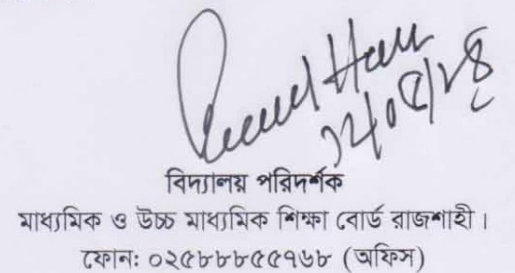 বিদ্যালয় পরিদর্শক
মাধ্যমিক ও উচ্চ মাধ্যমিক শিক্ষা বোর্ড রাজশাহী।
ফোন: ০২৫৮৮৮৫৫৭৬৮ (অফিস)